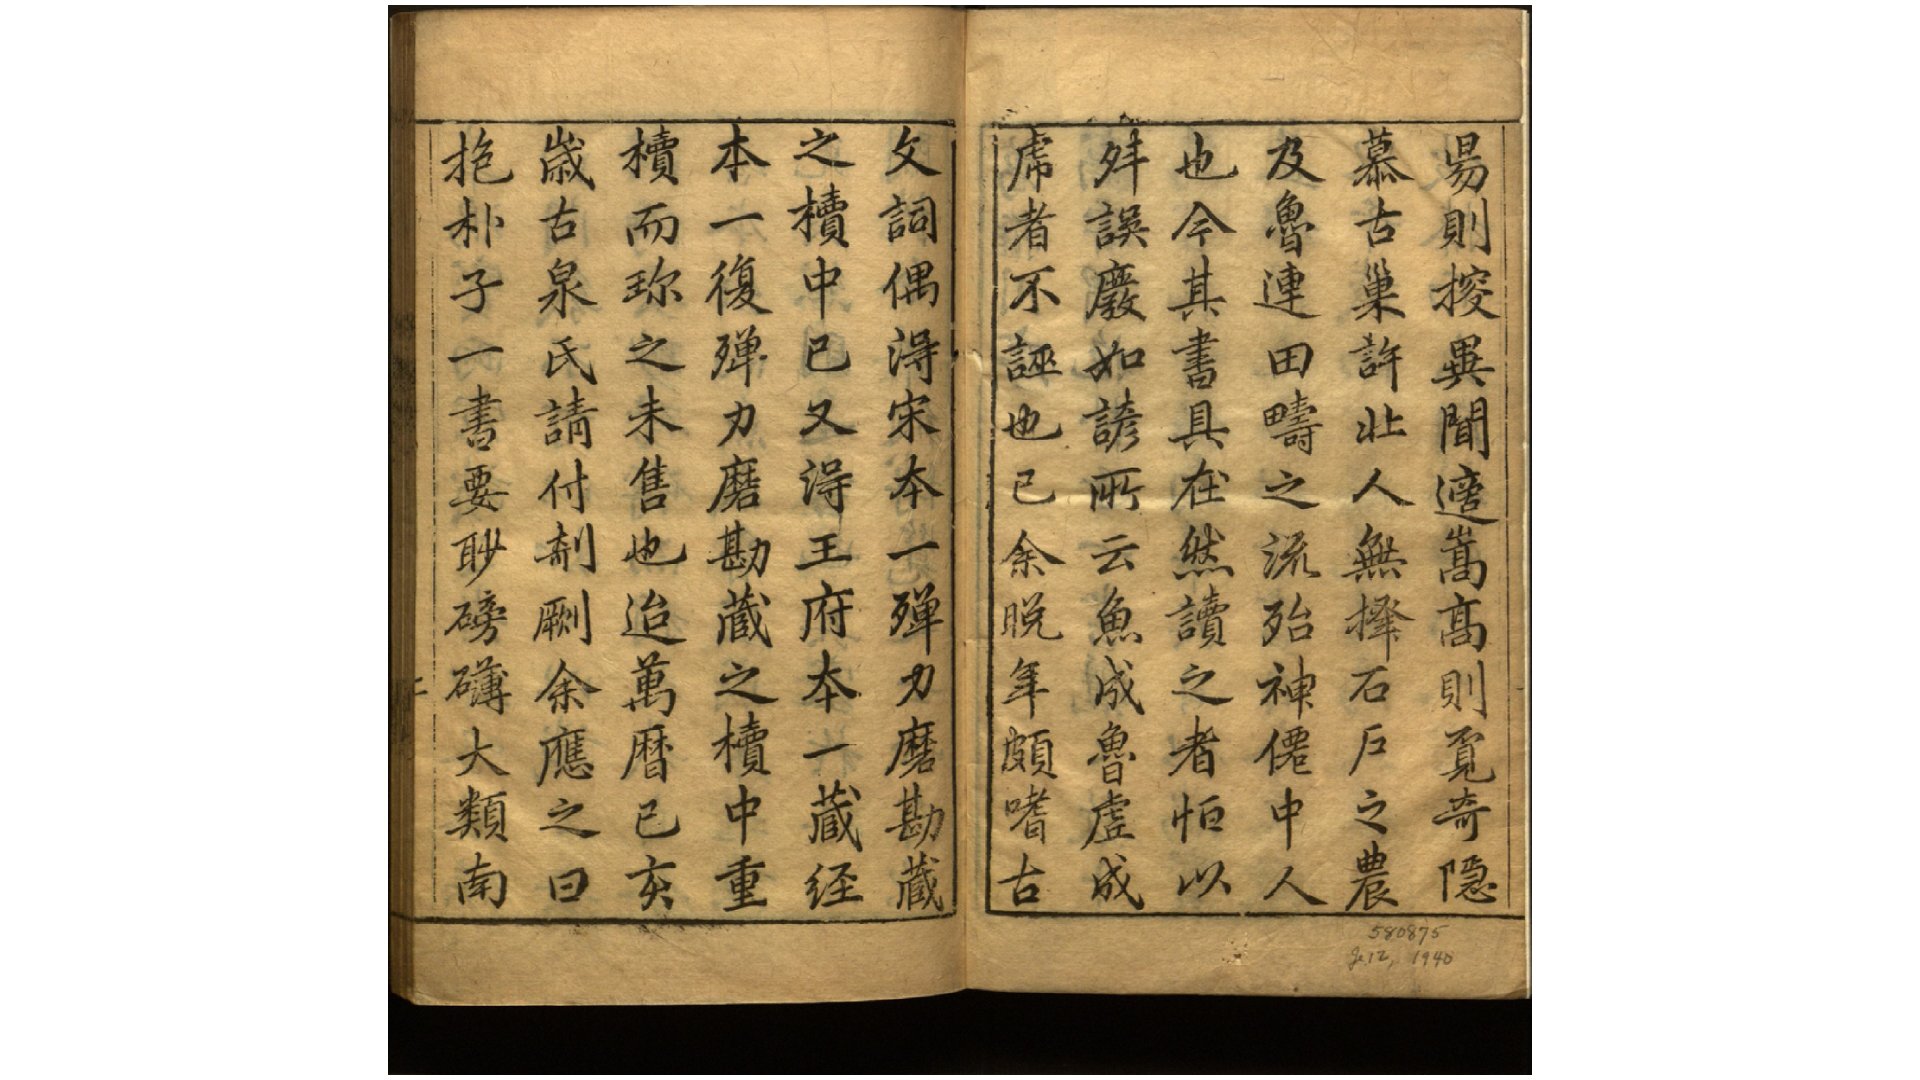 昜則搜異聞適嵩高則覓奇隱
慕古巢許北人無擇石戶之農
及魯連田疇之流殆神僊中人
也今其書具在然讀之者怕以
舛誤廢如諺所云魚成魯虛成
虎者不誣也已余晚年頗嗜古
文詞偶淂宋本一殫力磨勘藏
之櫝中已又淂王府本一藏経
本一復殫力磨勘藏之櫝中重
櫝而珎之未售也迨萬曆已亥
歲古泉氏請付剞劂余應之曰
抱朴子一書要眇磅礴大類南
580875
Je 12, 1940